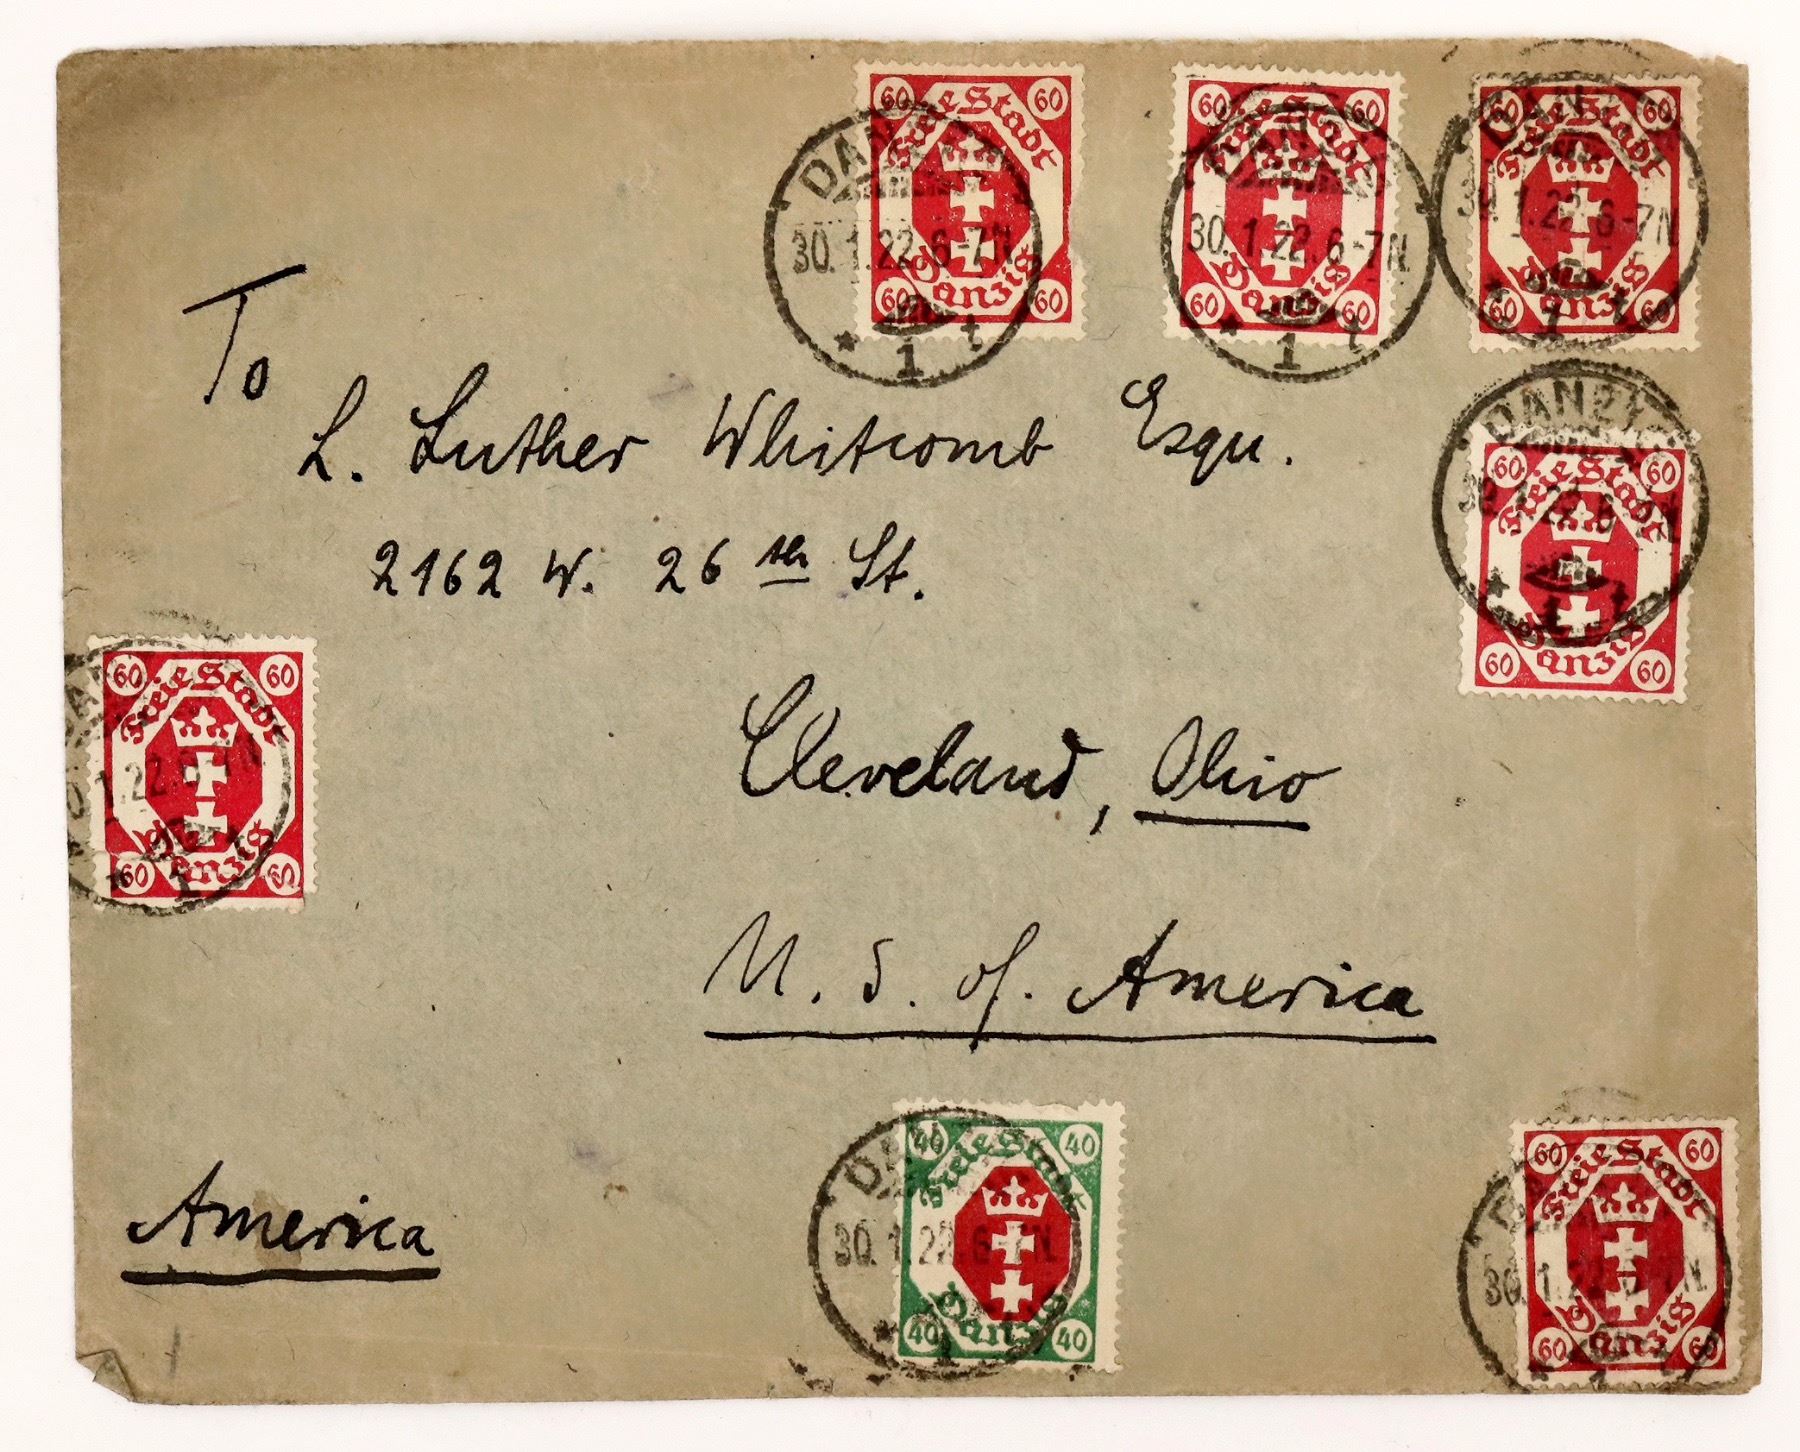 60 Freie Stadt 60
DANZIG
30.1.22.6-7N.
60 Danzig 60
* 1 t
60 Freie Stadt 60
DANZIG
30.1.22.6-7N.
60 Danzig 60
* 1 t
60 Freie Stadt 60
DANZIG
30.1.22.6-7N
60 Danzig 60
* 1 t
To
L. Luther Whitcomb Esqu.
DANZIG
60 Freie Stadt 60
30.1.22.6-7N
* 1 t
60 Danzig 60
2162 W. 26th St.
60 Freie Stadt 60
DANZIG
30.1.22.6-7N.
60 Danzig 60
* 1 t
Cleveland, Ohio
U. S. of. America
40 Freie Stadt 40
DANZIG
30.1.22.6-7N.
40 Danzig 40
* 1
60 Freie Stadt 60
DANZIG
30.1.22.6-7N.
60 Danzig 60
* 1
America